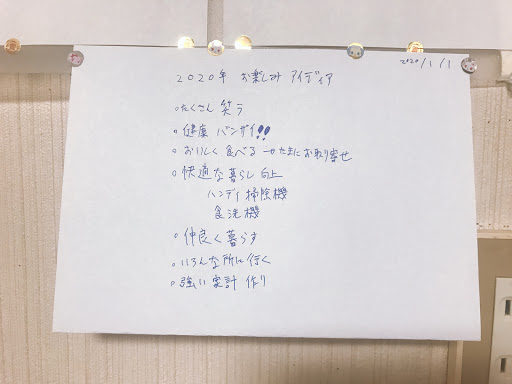 2020/1/1
2020年 お楽しみ アイディア
○たくさん 笑う
○健康 バンザイ!!
○おいしく 食べる ーたまに お取り寄せ
○快適な暮らし 向上
ハンディ掃除機
食洗機
○仲良く暮らす
○いろんな所に行く
○強い 家計 作り